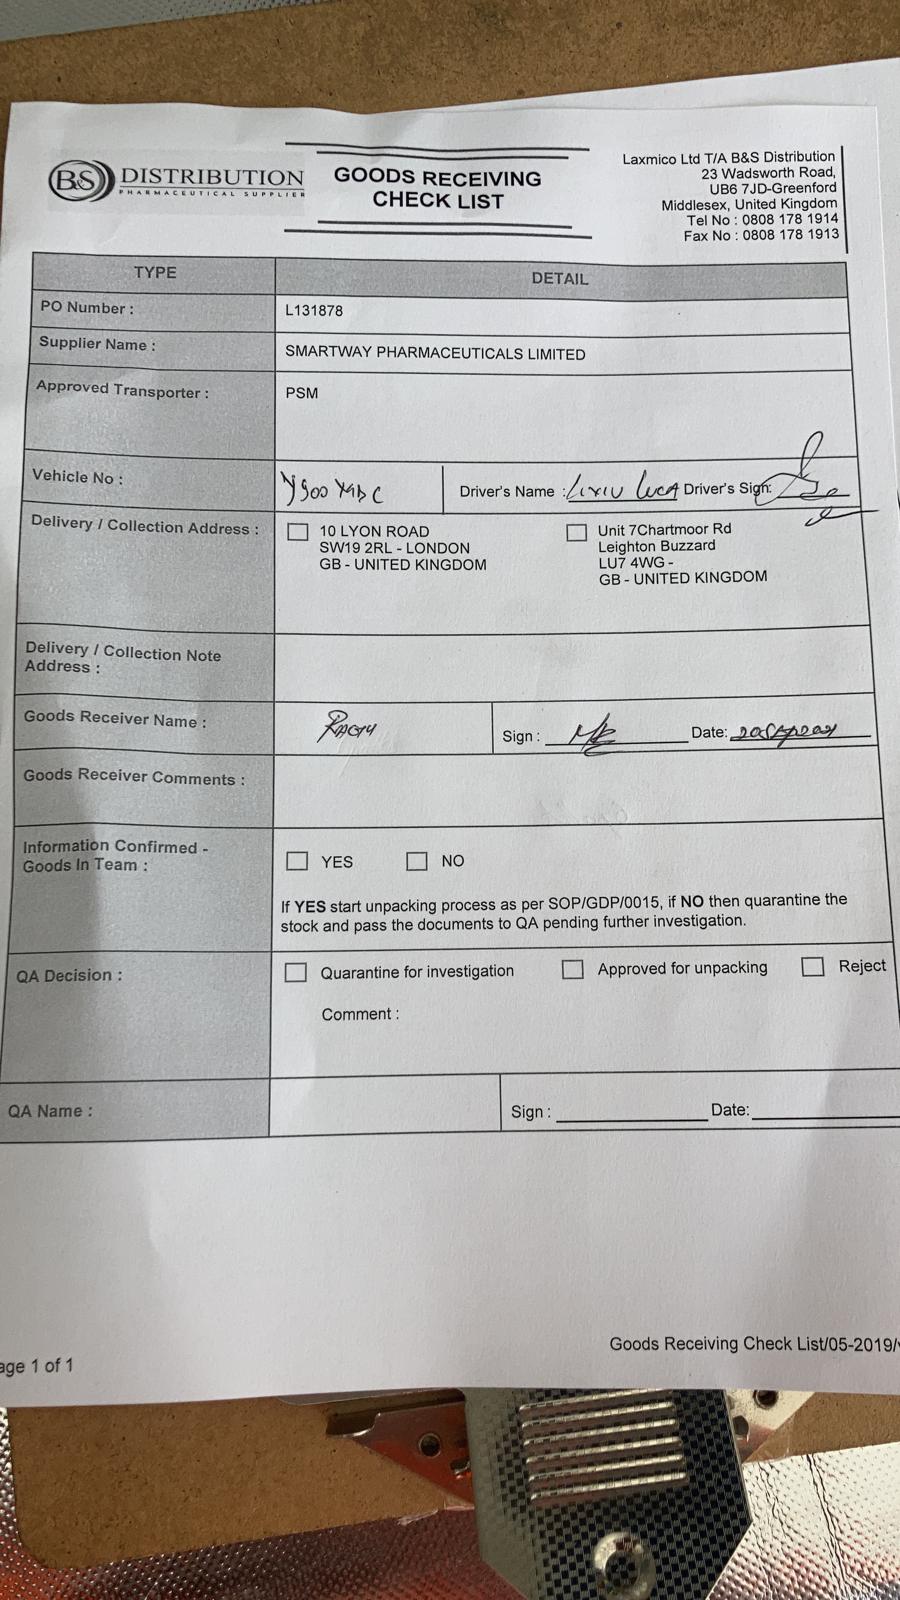 B&S DISTRIBUTION
PHARMACEUTICAL SUPPLIER
GOODS RECEIVING
CHECK LIST
Laxmico Ltd T/A B&S Distribution
23 Wadsworth Road,
UB6 7JD-Greenford
Middlesex, United Kingdom
Tel No : 0808 178 1914
Fax No : 0808 178 1913
TYPE DETAIL
PO Number : L131878
Supplier Name : SMARTWAY PHARMACEUTICALS LIMITED
Approved Transporter : PSM
Vehicle No : Driver's Name : LUCA Driver's Sign:
Delivery / Collection Address :
10 LYON ROAD
SW19 2RL - LONDON
GB - UNITED KINGDOM
Unit 7Chartmoor Rd
Leighton Buzzard
LU7 4WG -
GB - UNITED KINGDOM
Delivery / Collection Note
Address :
Goods Receiver Name : Sign : Date:
Goods Receiver Comments :
Information Confirmed -
Goods In Team :
YES NO
If YES start unpacking process as per SOP/GDP/0015, if NO then quarantine the
stock and pass the documents to QA pending further investigation.
QA Decision : Quarantine for investigation Approved for unpacking Reject
Comment :
QA Name : Sign : Date:
Goods Receiving Check List/05-2019/
age 1 of 1